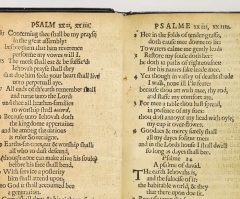 PSALM XXII, XXIII.
Concerning thee shall be my prayse
in the great assembly:
before them that him reverence
performe my vowes will I.
The meek shall eat & be suffic'd
Iehovah prayse shall they
that doe him seek: your heart shall live
unto perpetuall aye.
All ends of th'earth remember shall
and turne unto the Lord
and all Heathen-families
to worship shall
Because unto Iehovah doth
the kingdome appertaine
and he among the nations
is ruler Soveraigne.
Earths-fat-ones, worship shall
all who to dust descend,
(though none can make alive his soule)
before his face shall bend.
With service a posterity
him shall attend upon;
to God it shall accounted bee
a generation.
PSALME XXIII, XXIIII.
2 Hee in the folds of tender-grasse,
doth cause mee downe to lie:
To waters calme me gently leads
3 Restore my soule doth hee:
he doth in paths of righteousnes
for his names sake leade mee.
4 Yea though in valley of deaths shade
I walk, none ill I'le feare:
because thou art with mee, thy rod,
and staffe my comfort are.
5 For mee a table thou hast spread,
in presence of my foes:
thou dost annoynt my head with oyle,
my cup it over-flowes.
6 Goodnes & mercy surely shall
all my dayes follow mee:
and in the Lords house I shall dwell
so long as dayes shall bee.
Psalme 24
A psalme of david.
The earth Iehovahs is,
and the fulnesse of it:
the habitable world, & they
that there upon doe sit.